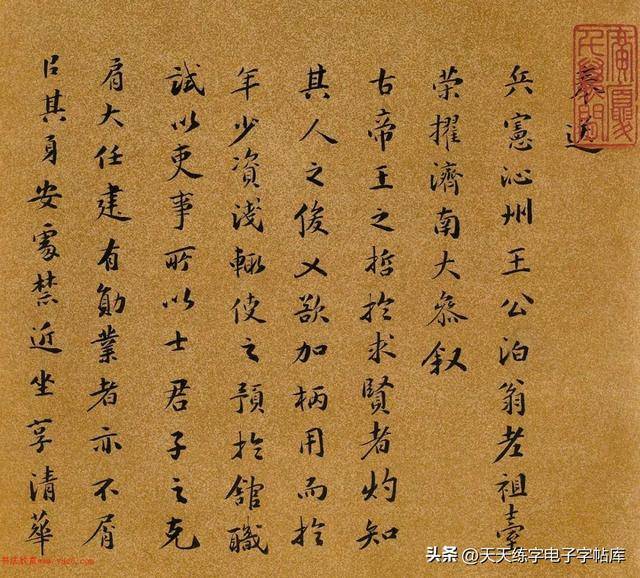 送
兵憲沁州王公泊翁老祖臺
荣擢濟南大叅叙
古帝王之哲於求賢者灼知
其人之俊乂欲加柄用而於
年少資淺輒使之預於館職
試以吏事所以士君子之克
肩大任建有勛業者亦不屑
㠯其身安處禁近坐享清華
头条 @天天练字电子字帖库